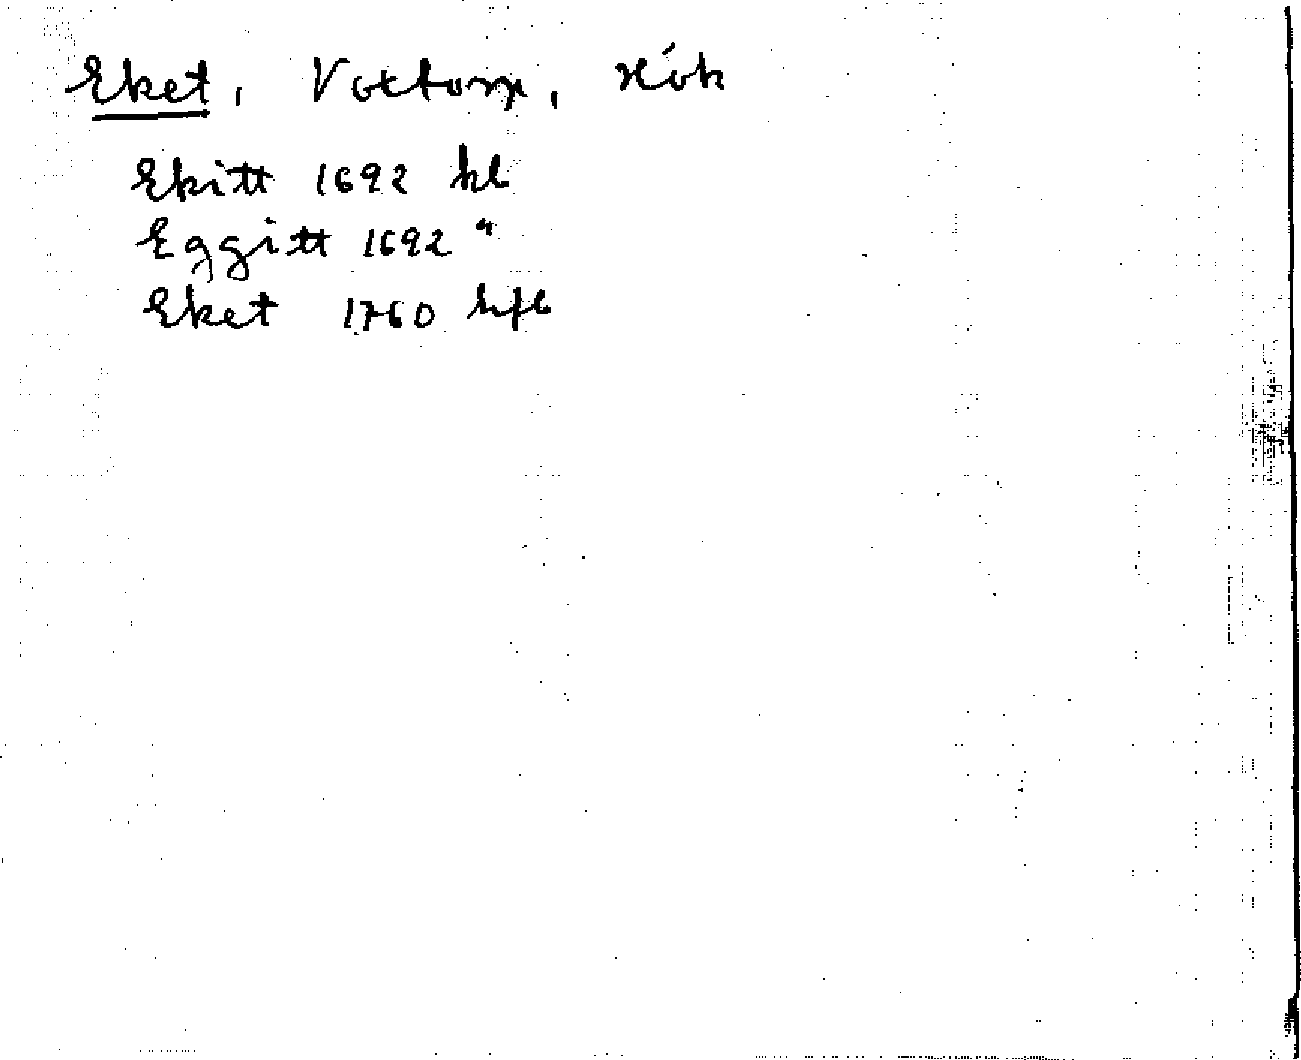 Eket, Vottorp, Hök
Ekitt 1692 hl
Eggitt 1692 "
Eket 1760 hfl